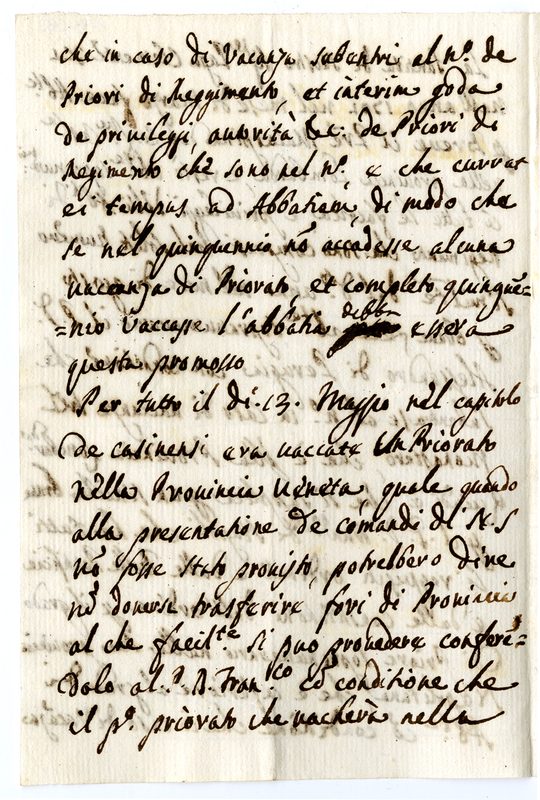 che in caso di Vacanza subentri al nº. de
Priori di Reggimento, et interim goda
de privilegii, autorità &c. de Priori di
Regimento che sono nel nº. e che currat
ei tempus ad Abbatiam, di modo che
se nel quinquennio nõ accadesse alcuna
vaccanza di Priorato, et completo quinquẽ=
=nio vaccasse l'abbatia debba essera
questa promosso
Per tutto il dì .13. Maggio nel capitolo
de casinensi era vaccate Un Priorato
nella Prouincia Veneta quale quando
alla presentatione de comandi di N. S
nõ fosse stato prouisto, potrebbero dire
nõ douersi trasferire fori di Prouincia
al che facil.te si puo prouedere conferẽ=
dolo al P. D. Fran.co cõ conditione che
il pº. priorato che vacherà nella